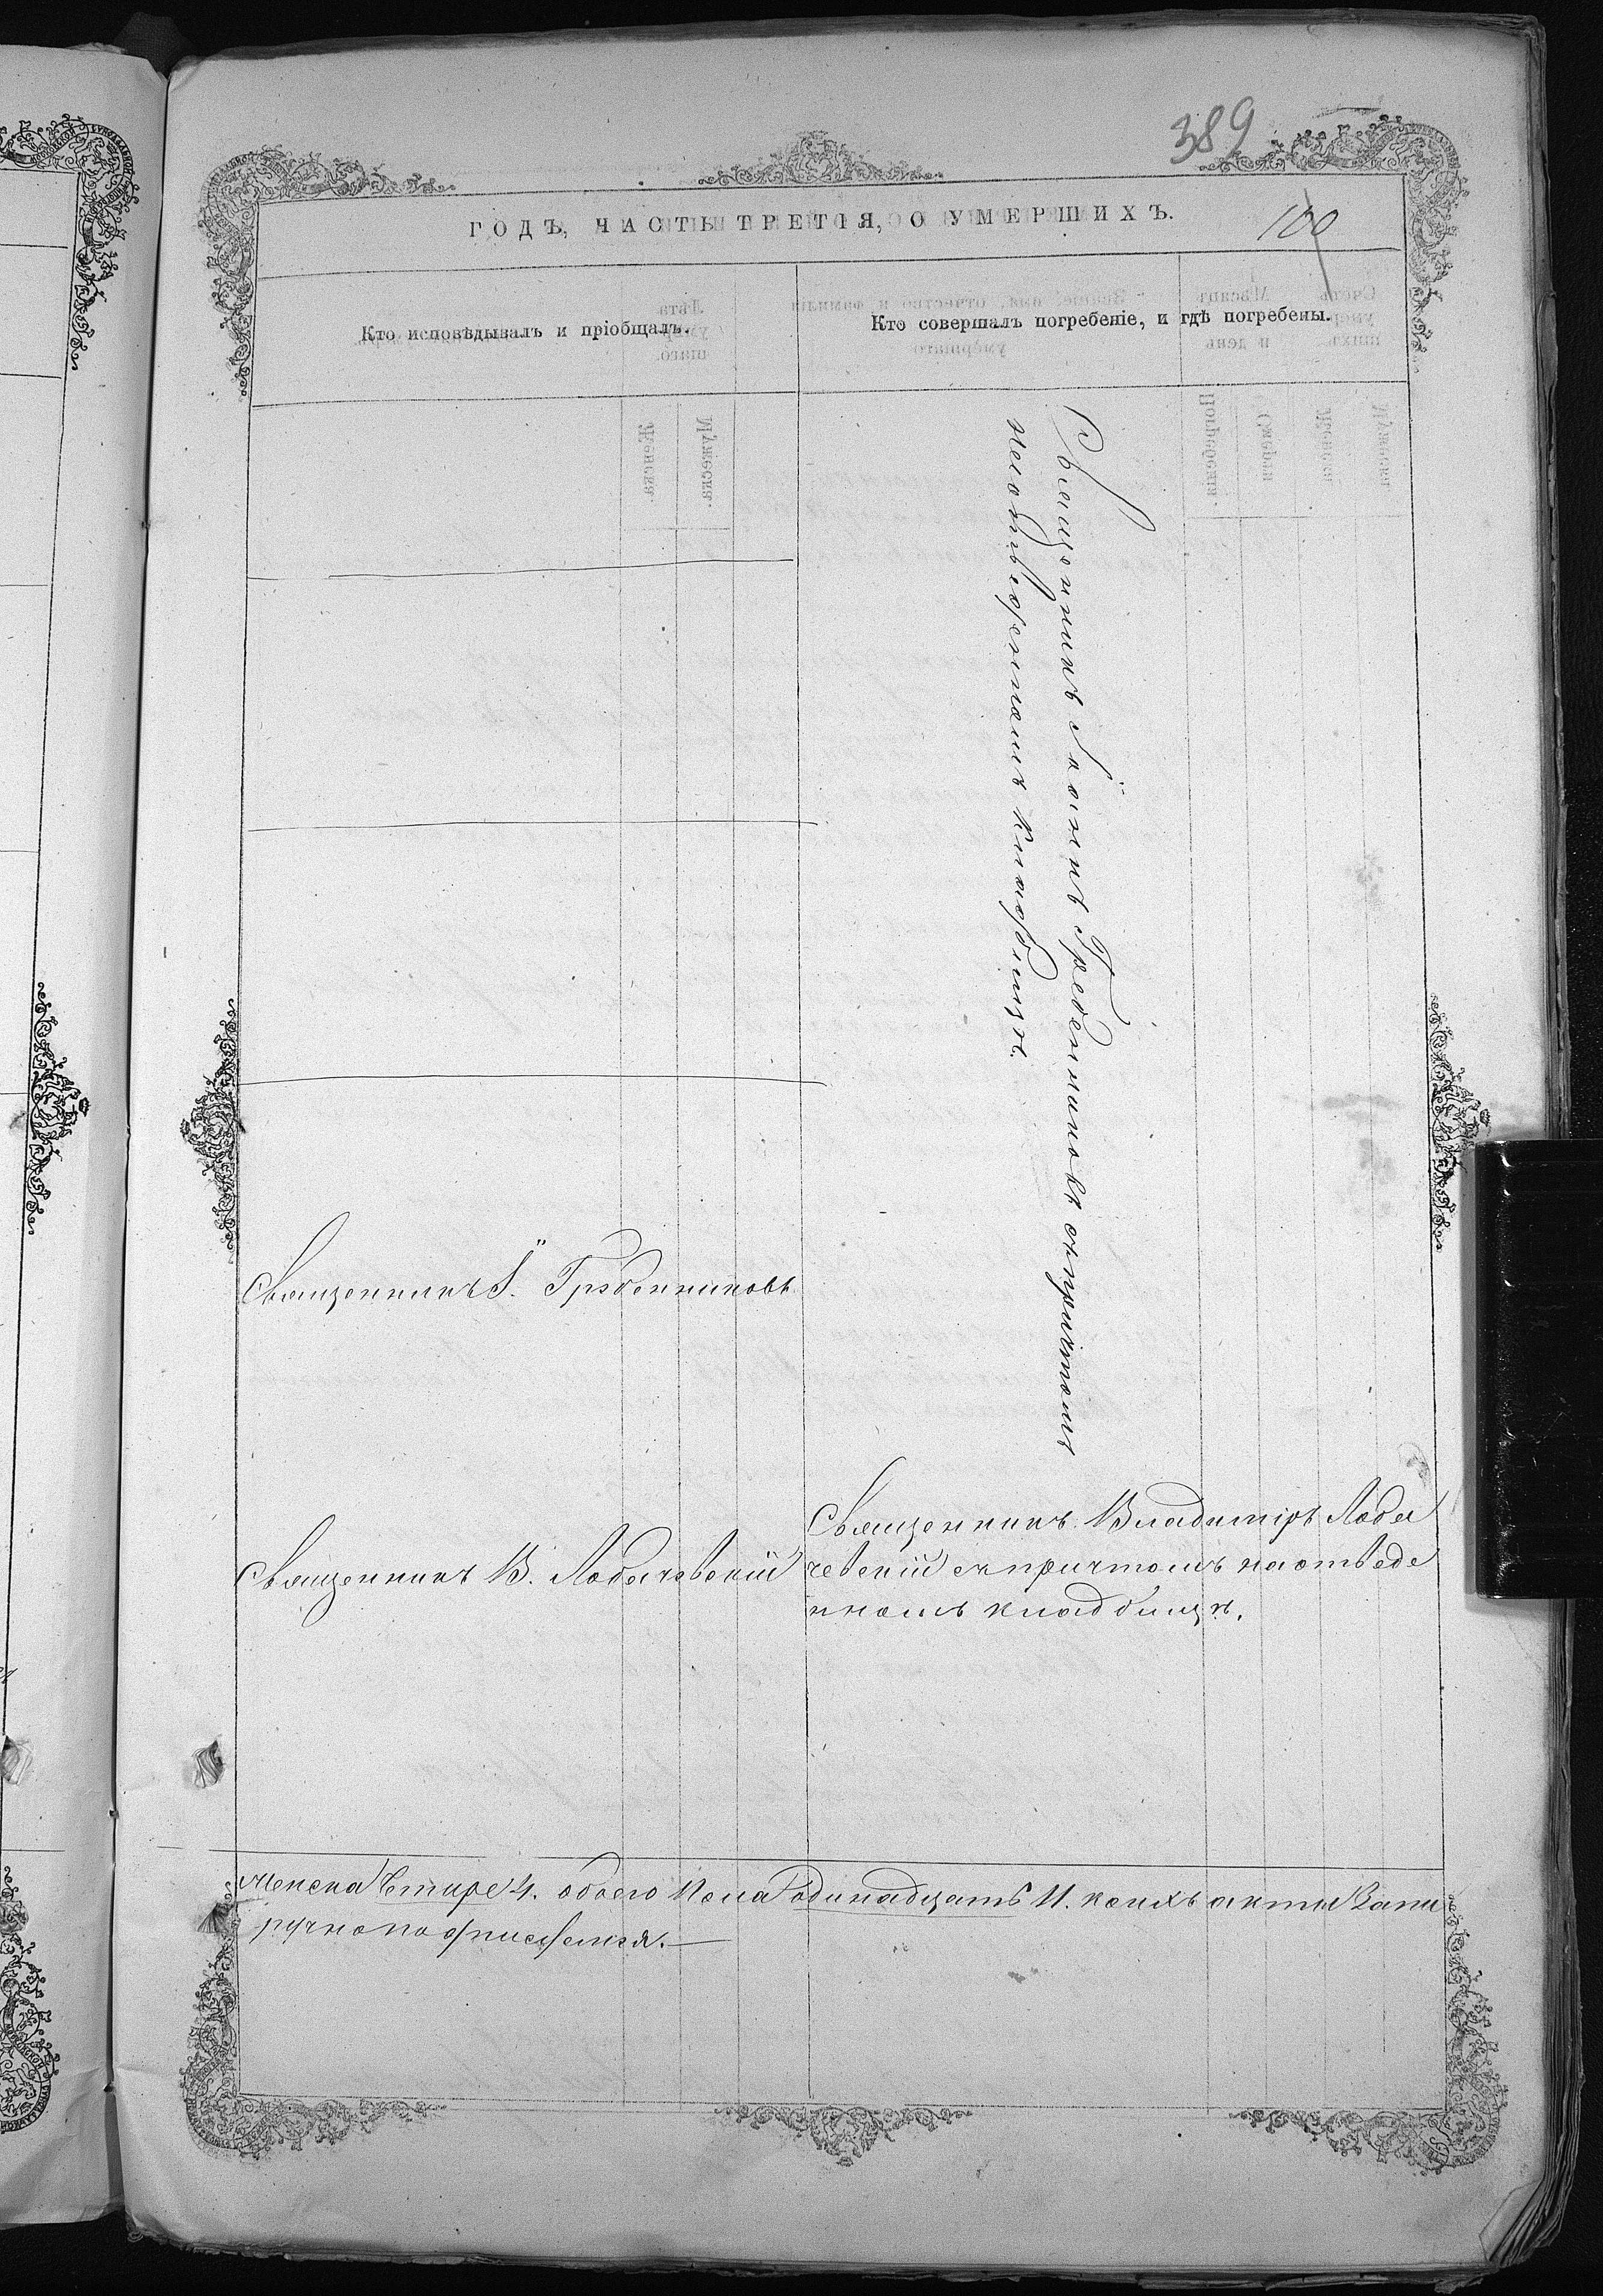 389
ГОДЪ, ЧАСТЬ ТРЕТІЯ, О УМЕРШИХЪ.
100
Кто исповѣдывалъ и пріобщалъ.
Кто совершалъ погребеніе, и гдѣ погребены.
Священникъ Іоаннъ Гребенниковъ съ причтомъ
на отведенномъ кладбищѣ.
Священникъ І. Грэбенниковъ
Священникъ В. Лобачевскій
Священникъ Владиміръ Лоба
чевскій съ причтомъ на отведе
нномъ кладбищѣ.
женска Четыре 4. обоего пола одинадцать 11. коихъ акты Запи
ручно подписуемся.—